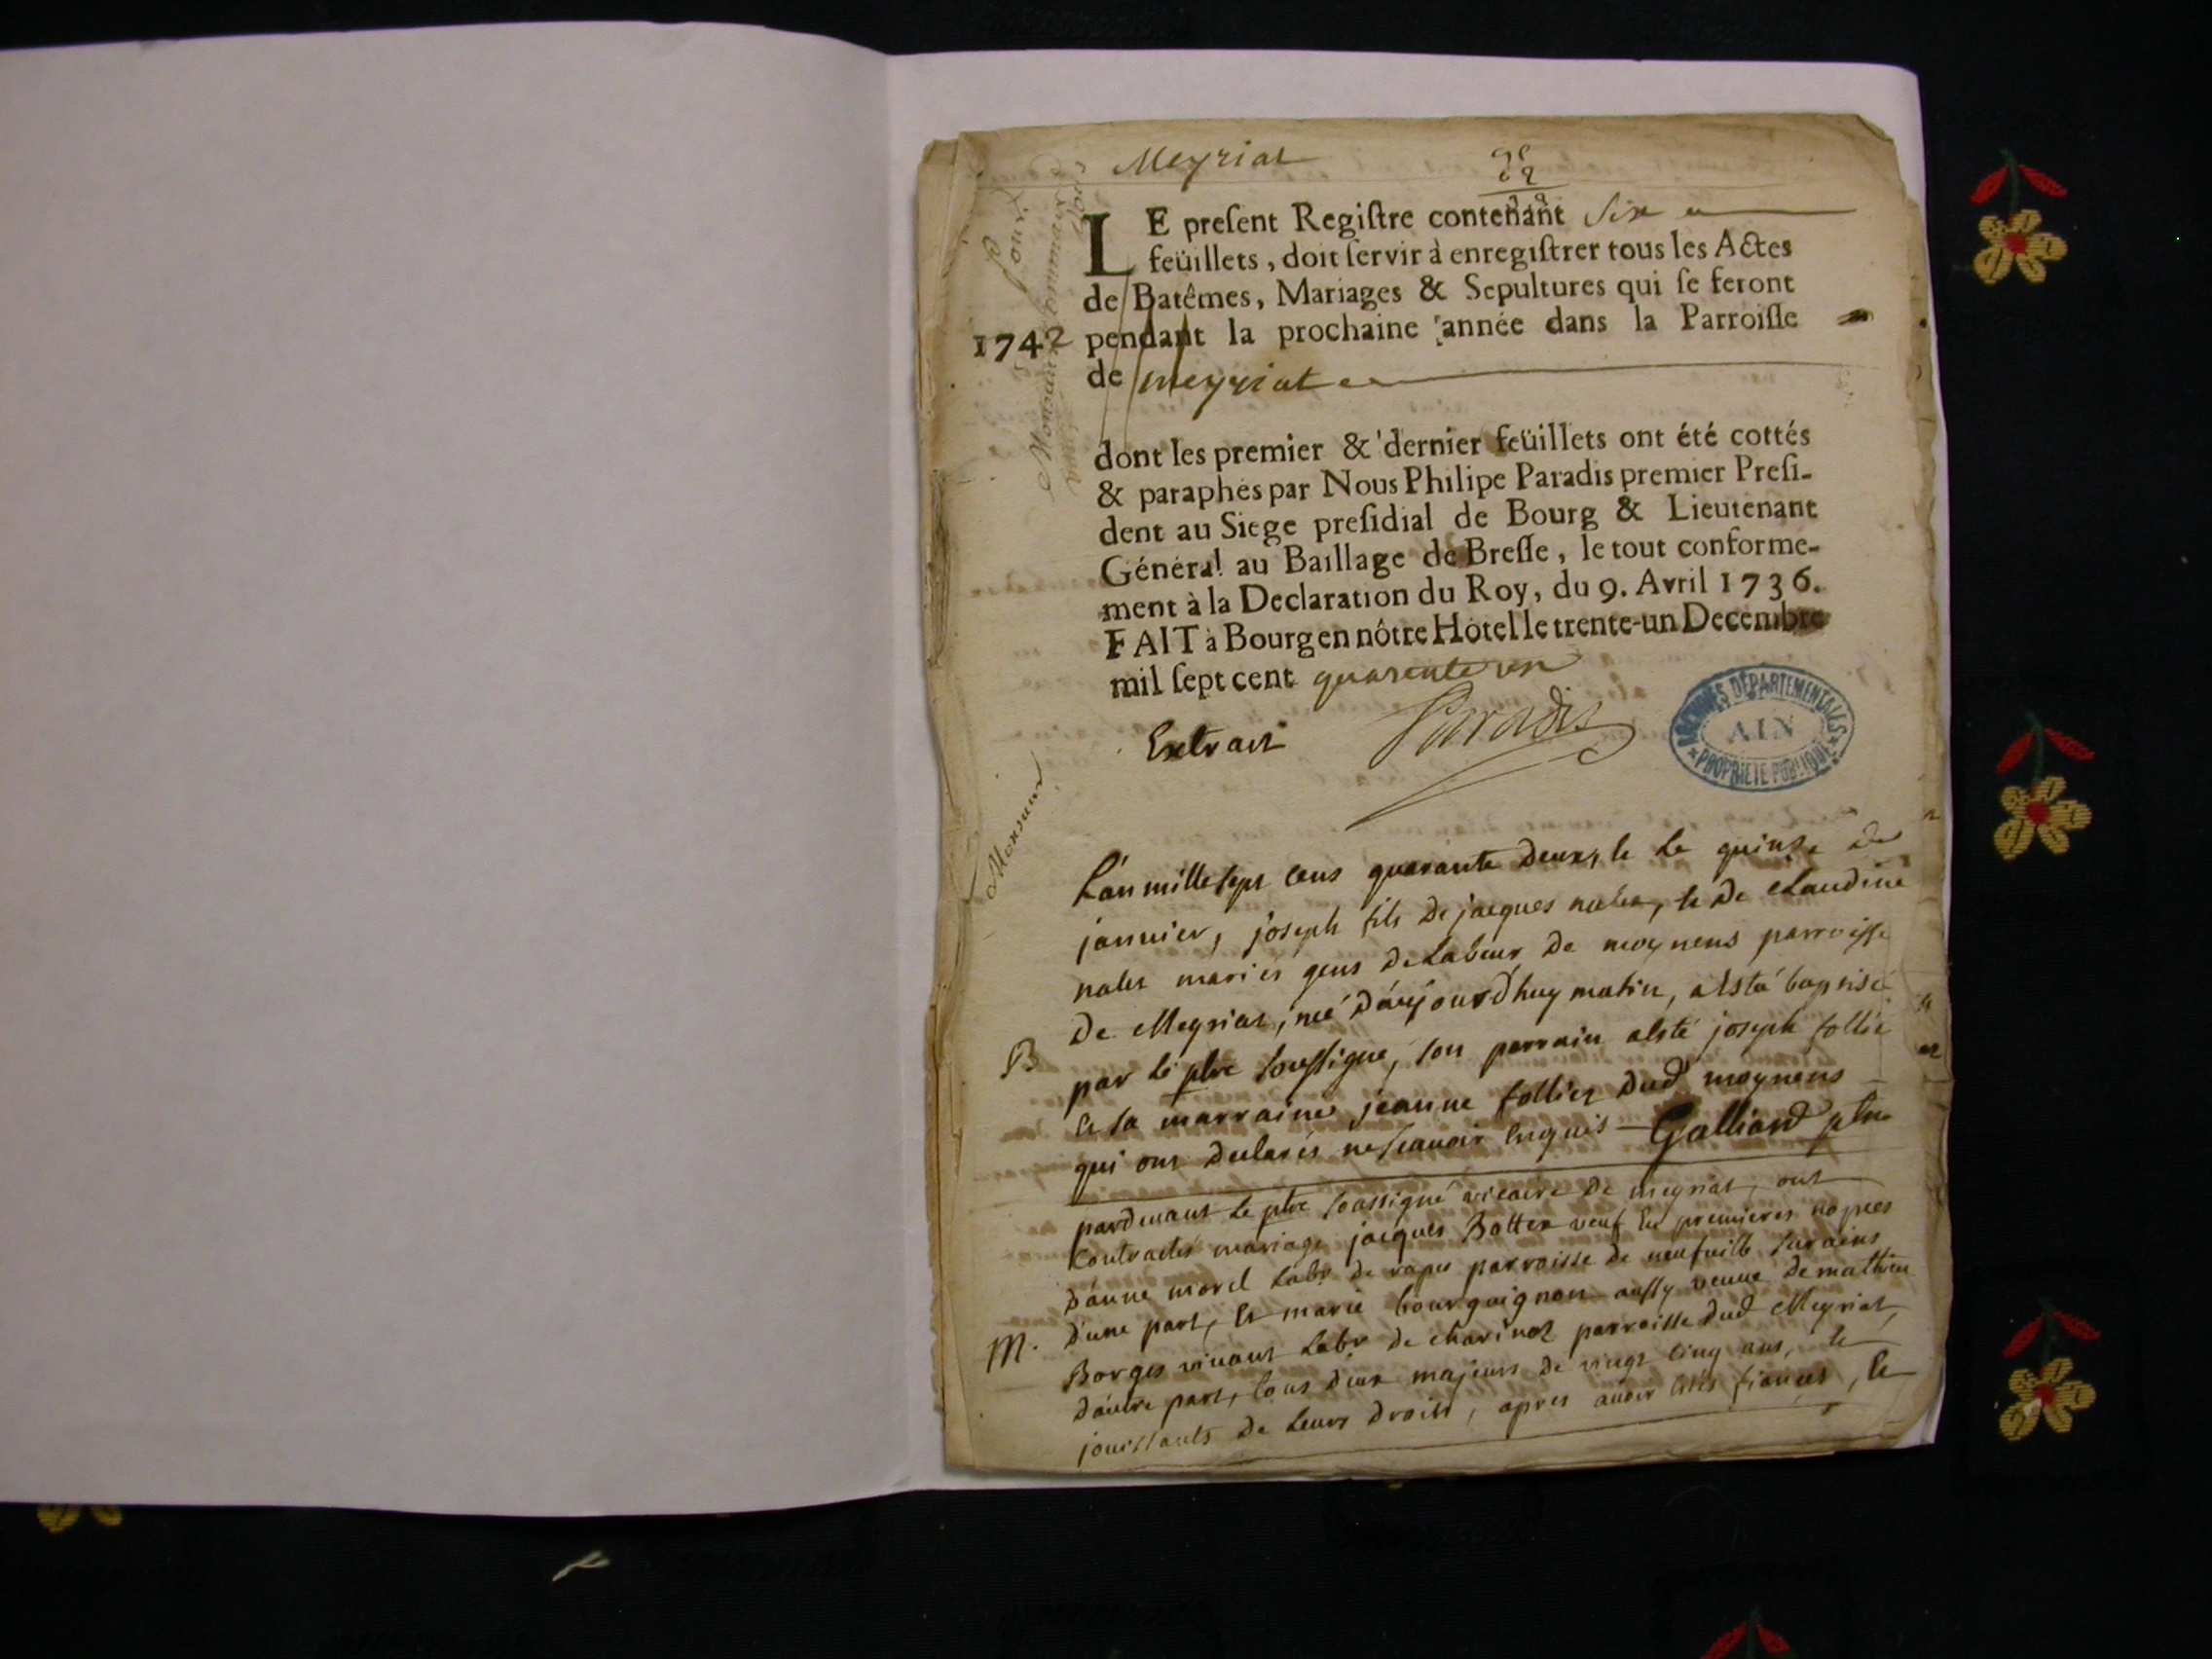 Meyriat
LE preſent Regiſtre contenant Six
feüillets, doit ſervir à enregiſtrer tous les Actes
de Batêmes, Mariages & Sepultures qui ſe feront
1742 pendant la prochaine année dans la Parroiſſe
de meyriat
dont les premier & dernier feüillets ont été cottés
& paraphés par Nous Philipe Paradis premier Preſi-
dent au Siege preſidial de Bourg & Lieutenant
Général au Baillage de Breſſe, le tout conforme-
ment à la Declaration du Roy, du 9. Avril 1736.
FAIT à Bourg en nôtre Hôtel le trente-un Decembre
mil ſept cent quarente un
Extrait Paradis
ARCHIVES DÉPARTEMENTALES
AIN
PROPRIÉTÉ PUBLIQUE
Monsieur
L'an mille sept cens quarante deux, & le quinze de
janvier, joseph fils de jacques, & de Claudine
mariés gens de Labeur de moynens parroisse
de Meyriat, né d'aujourdhuy matin, a esté baptisé
B par le ptre soussigné, son parrain a esté joseph follie
et sa marraine jeanne follier dud moynens
qui ont declarés ne scavoir enquis Galliard ptre
pardevant le ptre soussigné vicaire de meyriat, ont
contractés mariage jacques Bottex veuf en premieres nopces
d'anne morel Labr de rapes parroisse de neufville sur ains
M. d'une part, et marie bourguignon aussy veuve de mathieu
Borges vivant Labr de charinas parroisse dud Meyriat,
d'autre part, tous deux majeurs de vingt cinq ans, et
jouissants de leurs droits, apres avoir estés fiancés, et